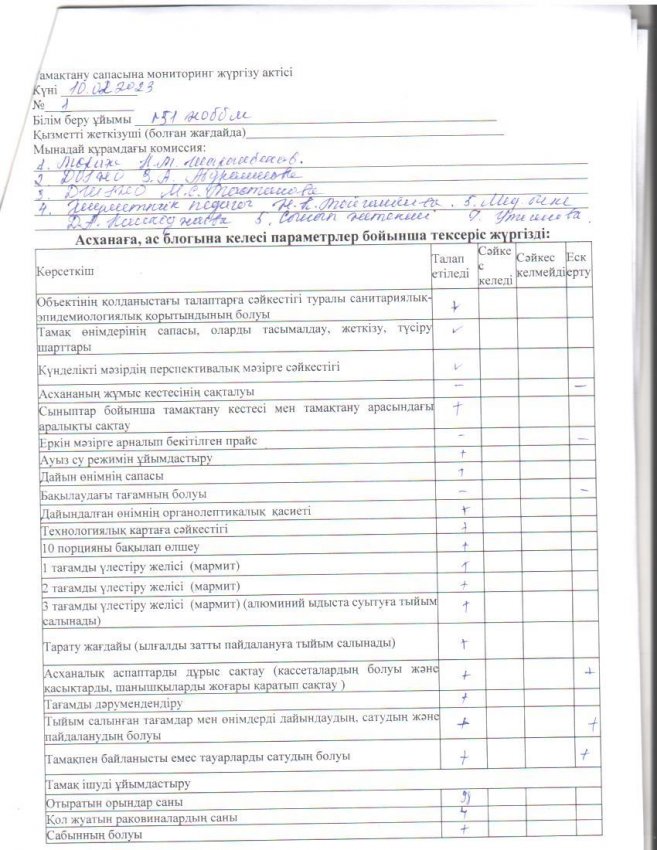 Тамақтану сапасына мониторинг жүргізу актісі
Күні 10.02.2023
№ 1
Білім беру ұйымы №51 жоббм
Қызметті жеткізуші (болған жағдайда)
Мынадай құрамдағы комиссия:
1.
2 ДОІЖО З.А.
3. М.С.
4. педагог Н.К. 5. Мед
Д.А. 5.
Асханаға, ас блогына келесі параметрлер бойынша тексеріс жүргізді:
Көрсеткіш Талап етіледі Сәйкес келеді Сәйкес келмейді Ескерту
Объектінің қолданыстағы талаптарға сәйкестігі туралы санитариялық-
эпидемиологиялық қорытындының болуы +
Тамақ өнімдерінің сапасы, оларды тасымалдау, жеткізу, түсіру
шарттары ✓
Күнделікті мәзірдің перспективалық мәзірге сәйкестігі ✓
Асхананың жұмыс кестесінің сақталуы – –
Сыныптар бойынша тамақтану кестесі мен тамақтану арасындағы
аралықты сақтау +
Еркін мәзірге арналып бекітілген прайс – –
Ауыз су режимін ұйымдастыру +
Дайын өнімнің сапасы +
Бақылаудағы тағамның болуы – –
Дайындалған өнімнің органолептикалық қасиеті +
Технологиялық картаға сәйкестігі +
10 порцияны бақылап өлшеу +
1 тағамды үлестіру желісі (мармит) +
2 тағамды үлестіру желісі (мармит) +
3 тағамды үлестіру желісі (мармит) (алюминий ыдыста суытуға тыйым
салынады) +
Тарату жағдайы (ылғалды затты пайдалануға тыйым салынады) +
Асханалық аспаптарды дұрыс сақтау (кассеталардың болуы және
қасықтарды, шанышқыларды жоғары қаратып сақтау ) + +
Тағамды дәрумендендіру +
Тыйым салынған тағамдар мен өнімдерді дайындаудың, сатудың және
пайдаланудың болуы + +
Тамақпен байланысты емес тауарларды сатудың болуы + +
Тамақ ішуді ұйымдастыру
Отыратын орындар саны
Қол жуатын раковиналардың саны 4
Сабынның болуы +